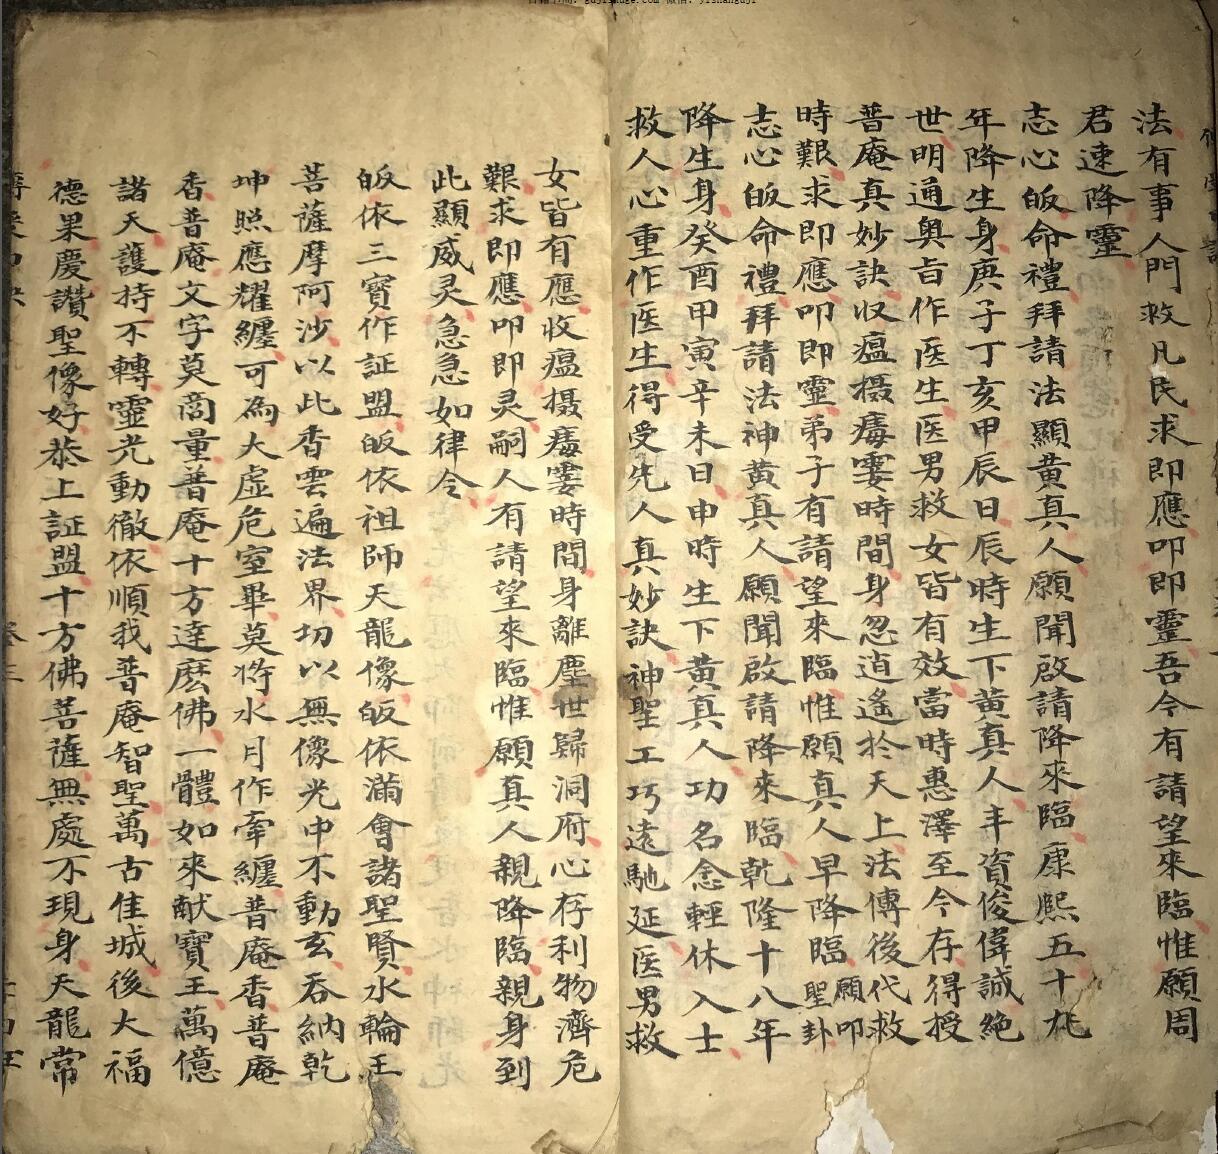 法有事人門救凡民求即應叩即靈吾今有請望來臨惟願周
君速降靈
志心皈命禮拜請法顯黃真人願聞啟請降來臨康熙五十九
年降生身庚子丁亥甲辰日辰時生下黃真人丰資俊偉誠絶
世明通奧旨作医生医男救女皆有效當時惠澤至今存得授
普庵真妙訣収瘟摄毒霎時間身忽逍遙於天上法傳後代救
時艱求即應叩即靈弟子有請望來臨惟願真人早降臨 願叩聖卦
志心皈命禮拜請法神黃真人願聞啟請降來臨乾隆十八年
降生身癸酉甲寅辛未日申時生下黃真人功名念輕休入士
救人心重作医生得受先人真妙訣神聖工巧遠馳延医男救
女皆有應收瘟摄毒霎時間身離塵世歸洞府心存利物濟危
艱求即應叩即灵嗣人有請望來臨惟願真人親降臨親身到
此顯威灵急急如律令
皈依三寳作証盟皈依祖師天龍像皈依滿會諸聖賢水輪王
菩薩摩阿沙以此香雲遍法界切以無像光中不動玄吞納乾
坤照應耀纏可為大虛危室畢莫將水月作牽纏普庵香普庵
香普庵文字莫商量普庵十方達麽佛一體如來献寶王萬億
諸天護持不轉靈光動徹依順我普庵智聖萬古佳城後大福
德果慶讚聖像好恭上証盟十方佛菩薩無處不現身天龍常